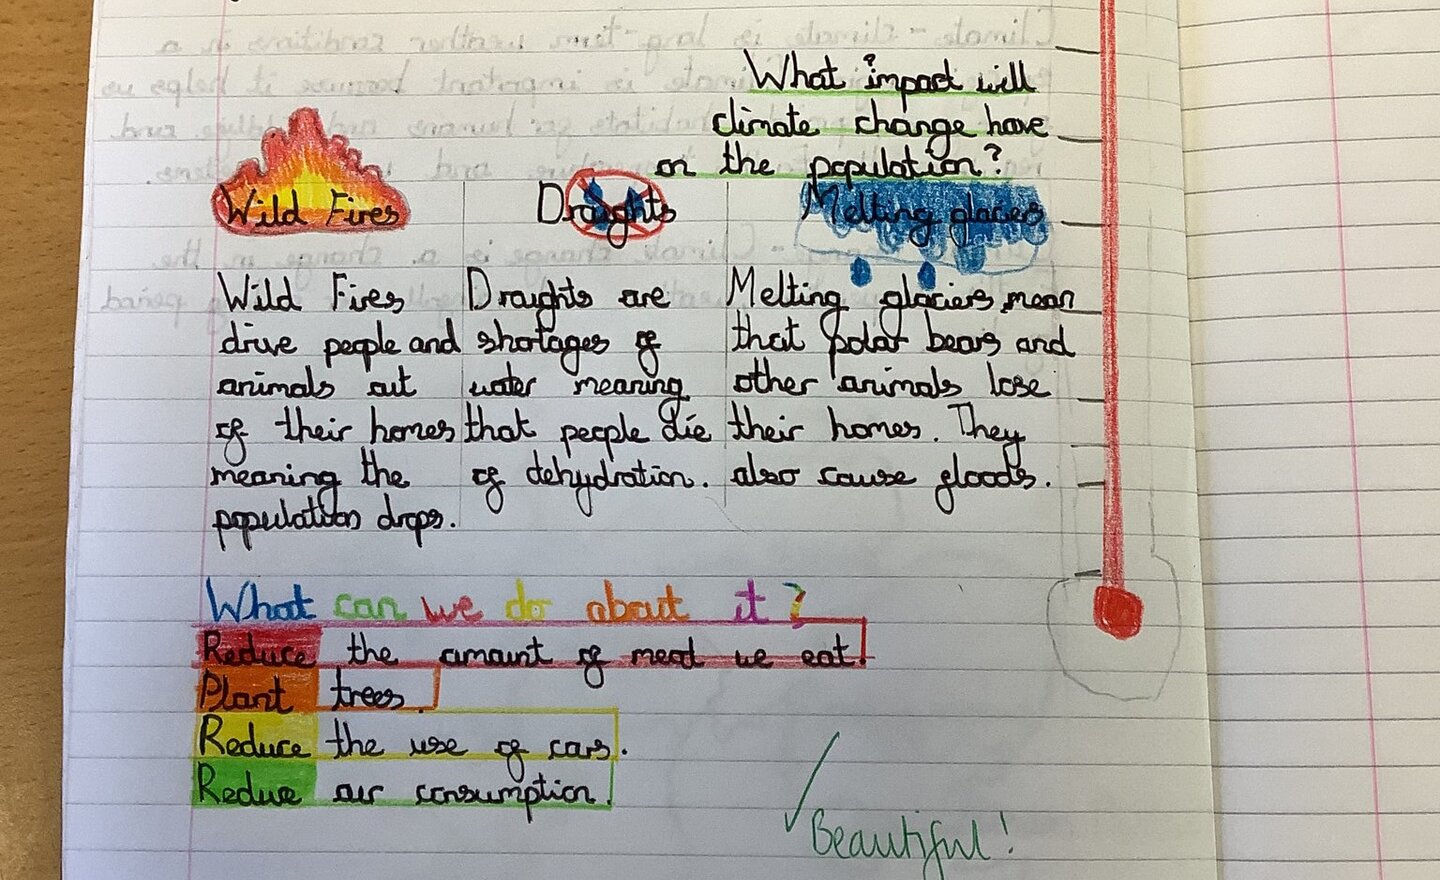 What impact will
climate change have
on the population?
Wild Fires
Wild Fires
drive people and
animals out
of their homes
meaning the
population drops.
Draughts
Draughts are
shortages of
water meaning
that people die
of dehydration.
Melting glaciers
Melting glaciers mean
that polar bears and
other animals lose
their homes. They
also cause floods.
What can we do about it?
Reduce the amount of meat we eat.
Plant trees.
Reduce the use of cars.
Reduce our consumption.
Beautiful!